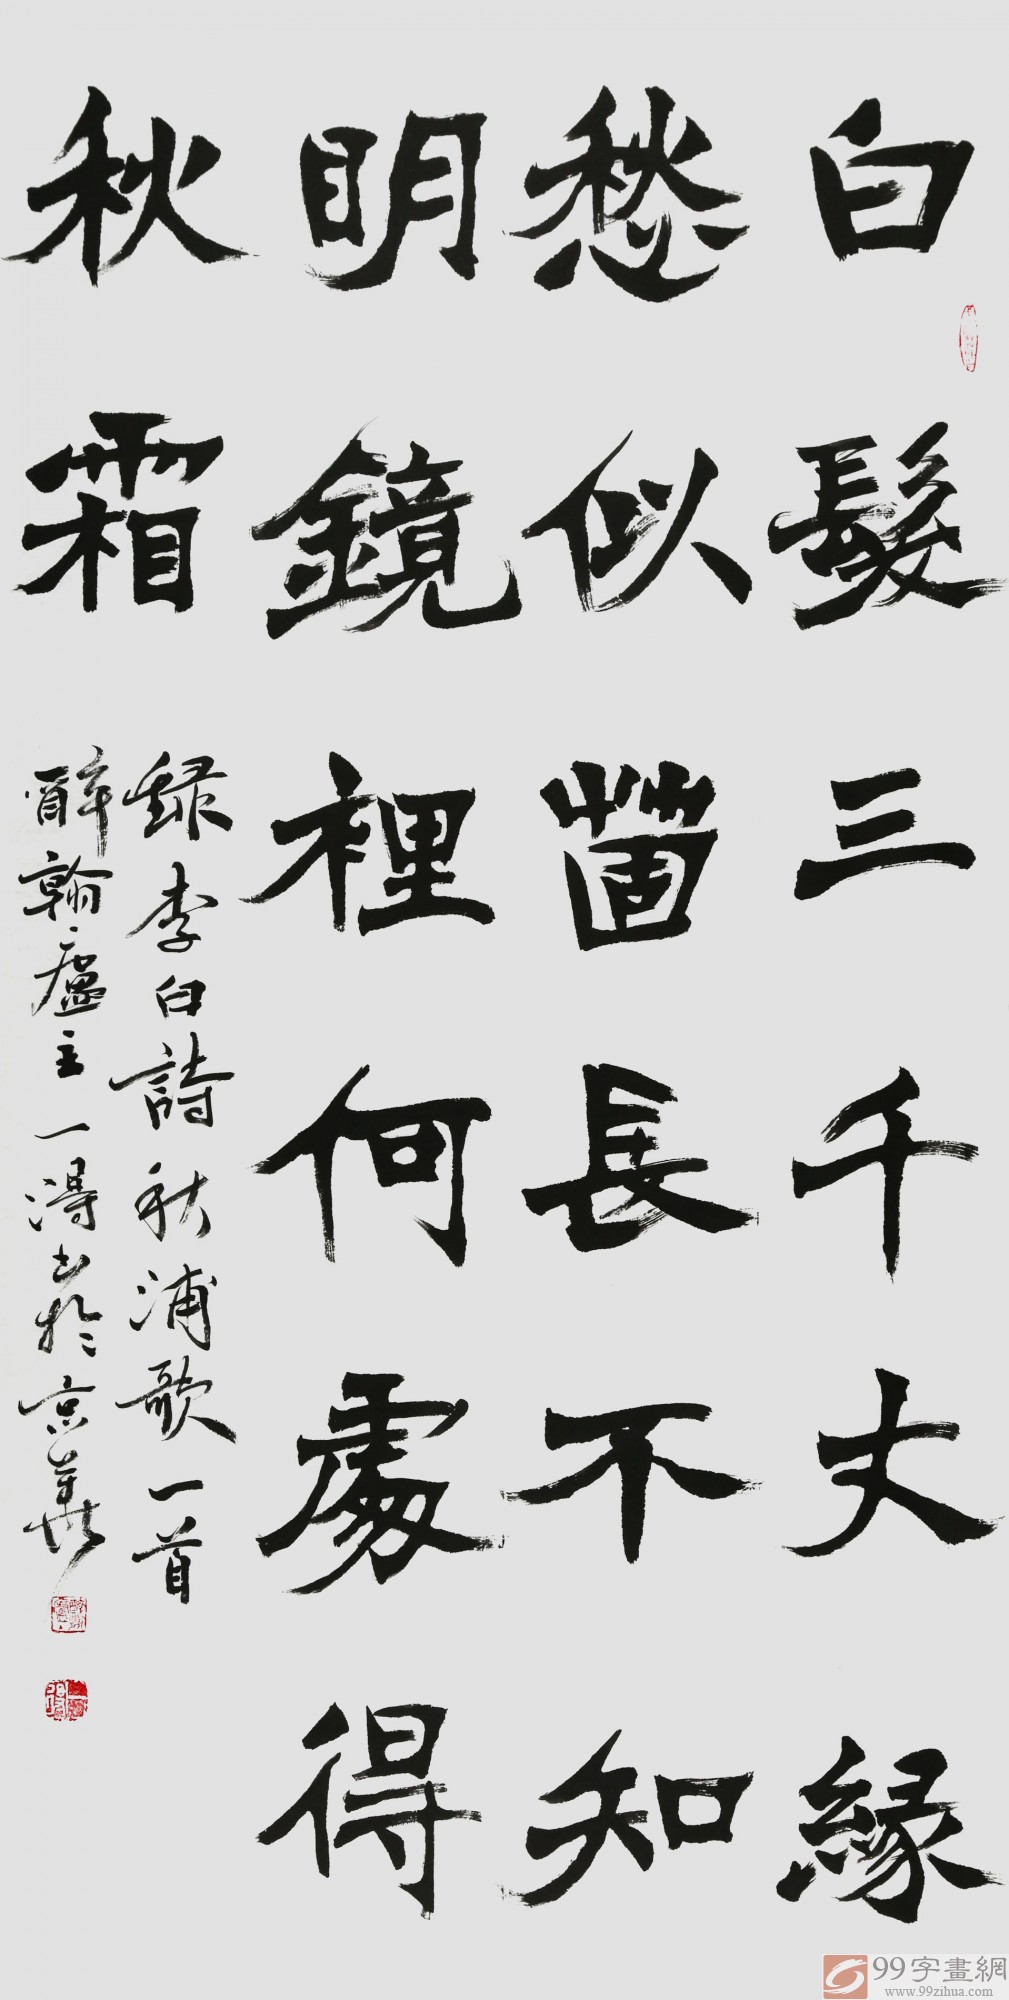 白髮三千丈緣
愁似箇長不知
明鏡裡何處得
秋霜
錄李白詩秋浦歌一首
醉翰廬主一得書於京華
99字畫網
www.99zihua.com